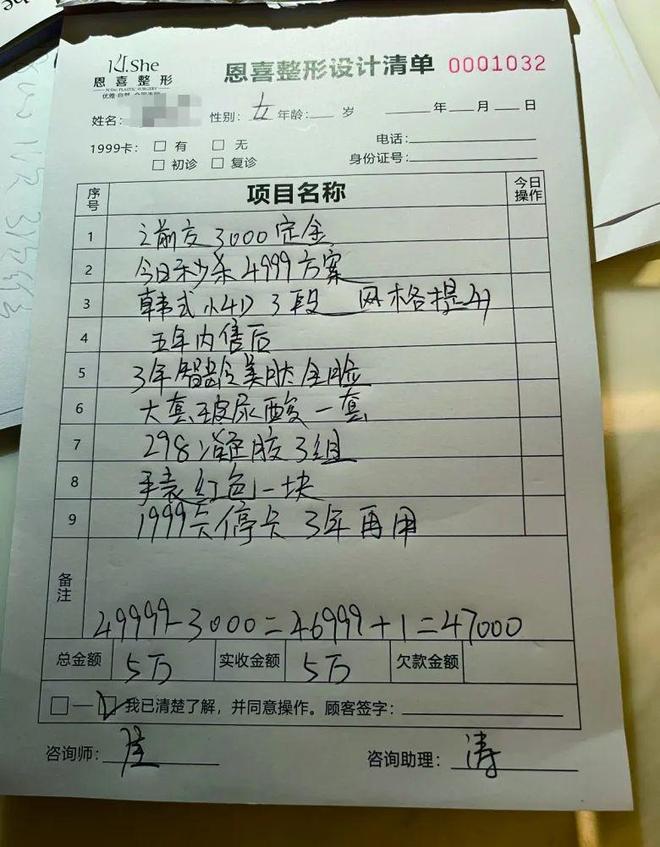 KI.She
恩喜整形
恩喜整形设计清单 0001032
姓名: 性别: 女 年龄: 岁 年 月 日
1999卡: □ 有 □ 无 电话:
□ 初诊 □ 复诊 身份证号:
序号 项目名称 今日操作
1 之前交3000定金
2 今日秒杀4999方案
3 韩式小4D 3段 风格提升
4 五年内售后
5 3年智龄美肤全脸
6 大套玻尿酸一套
7 298凝胶3组
8 手表红色一块
9 1999卡停卡 3年再用
备注 49999-3000=46999+1=47000
总金额 5万 实收金额 5万 欠款金额
□—□我已清楚了解，并同意操作。顾客签字:
咨询师: 咨询助理: 涛